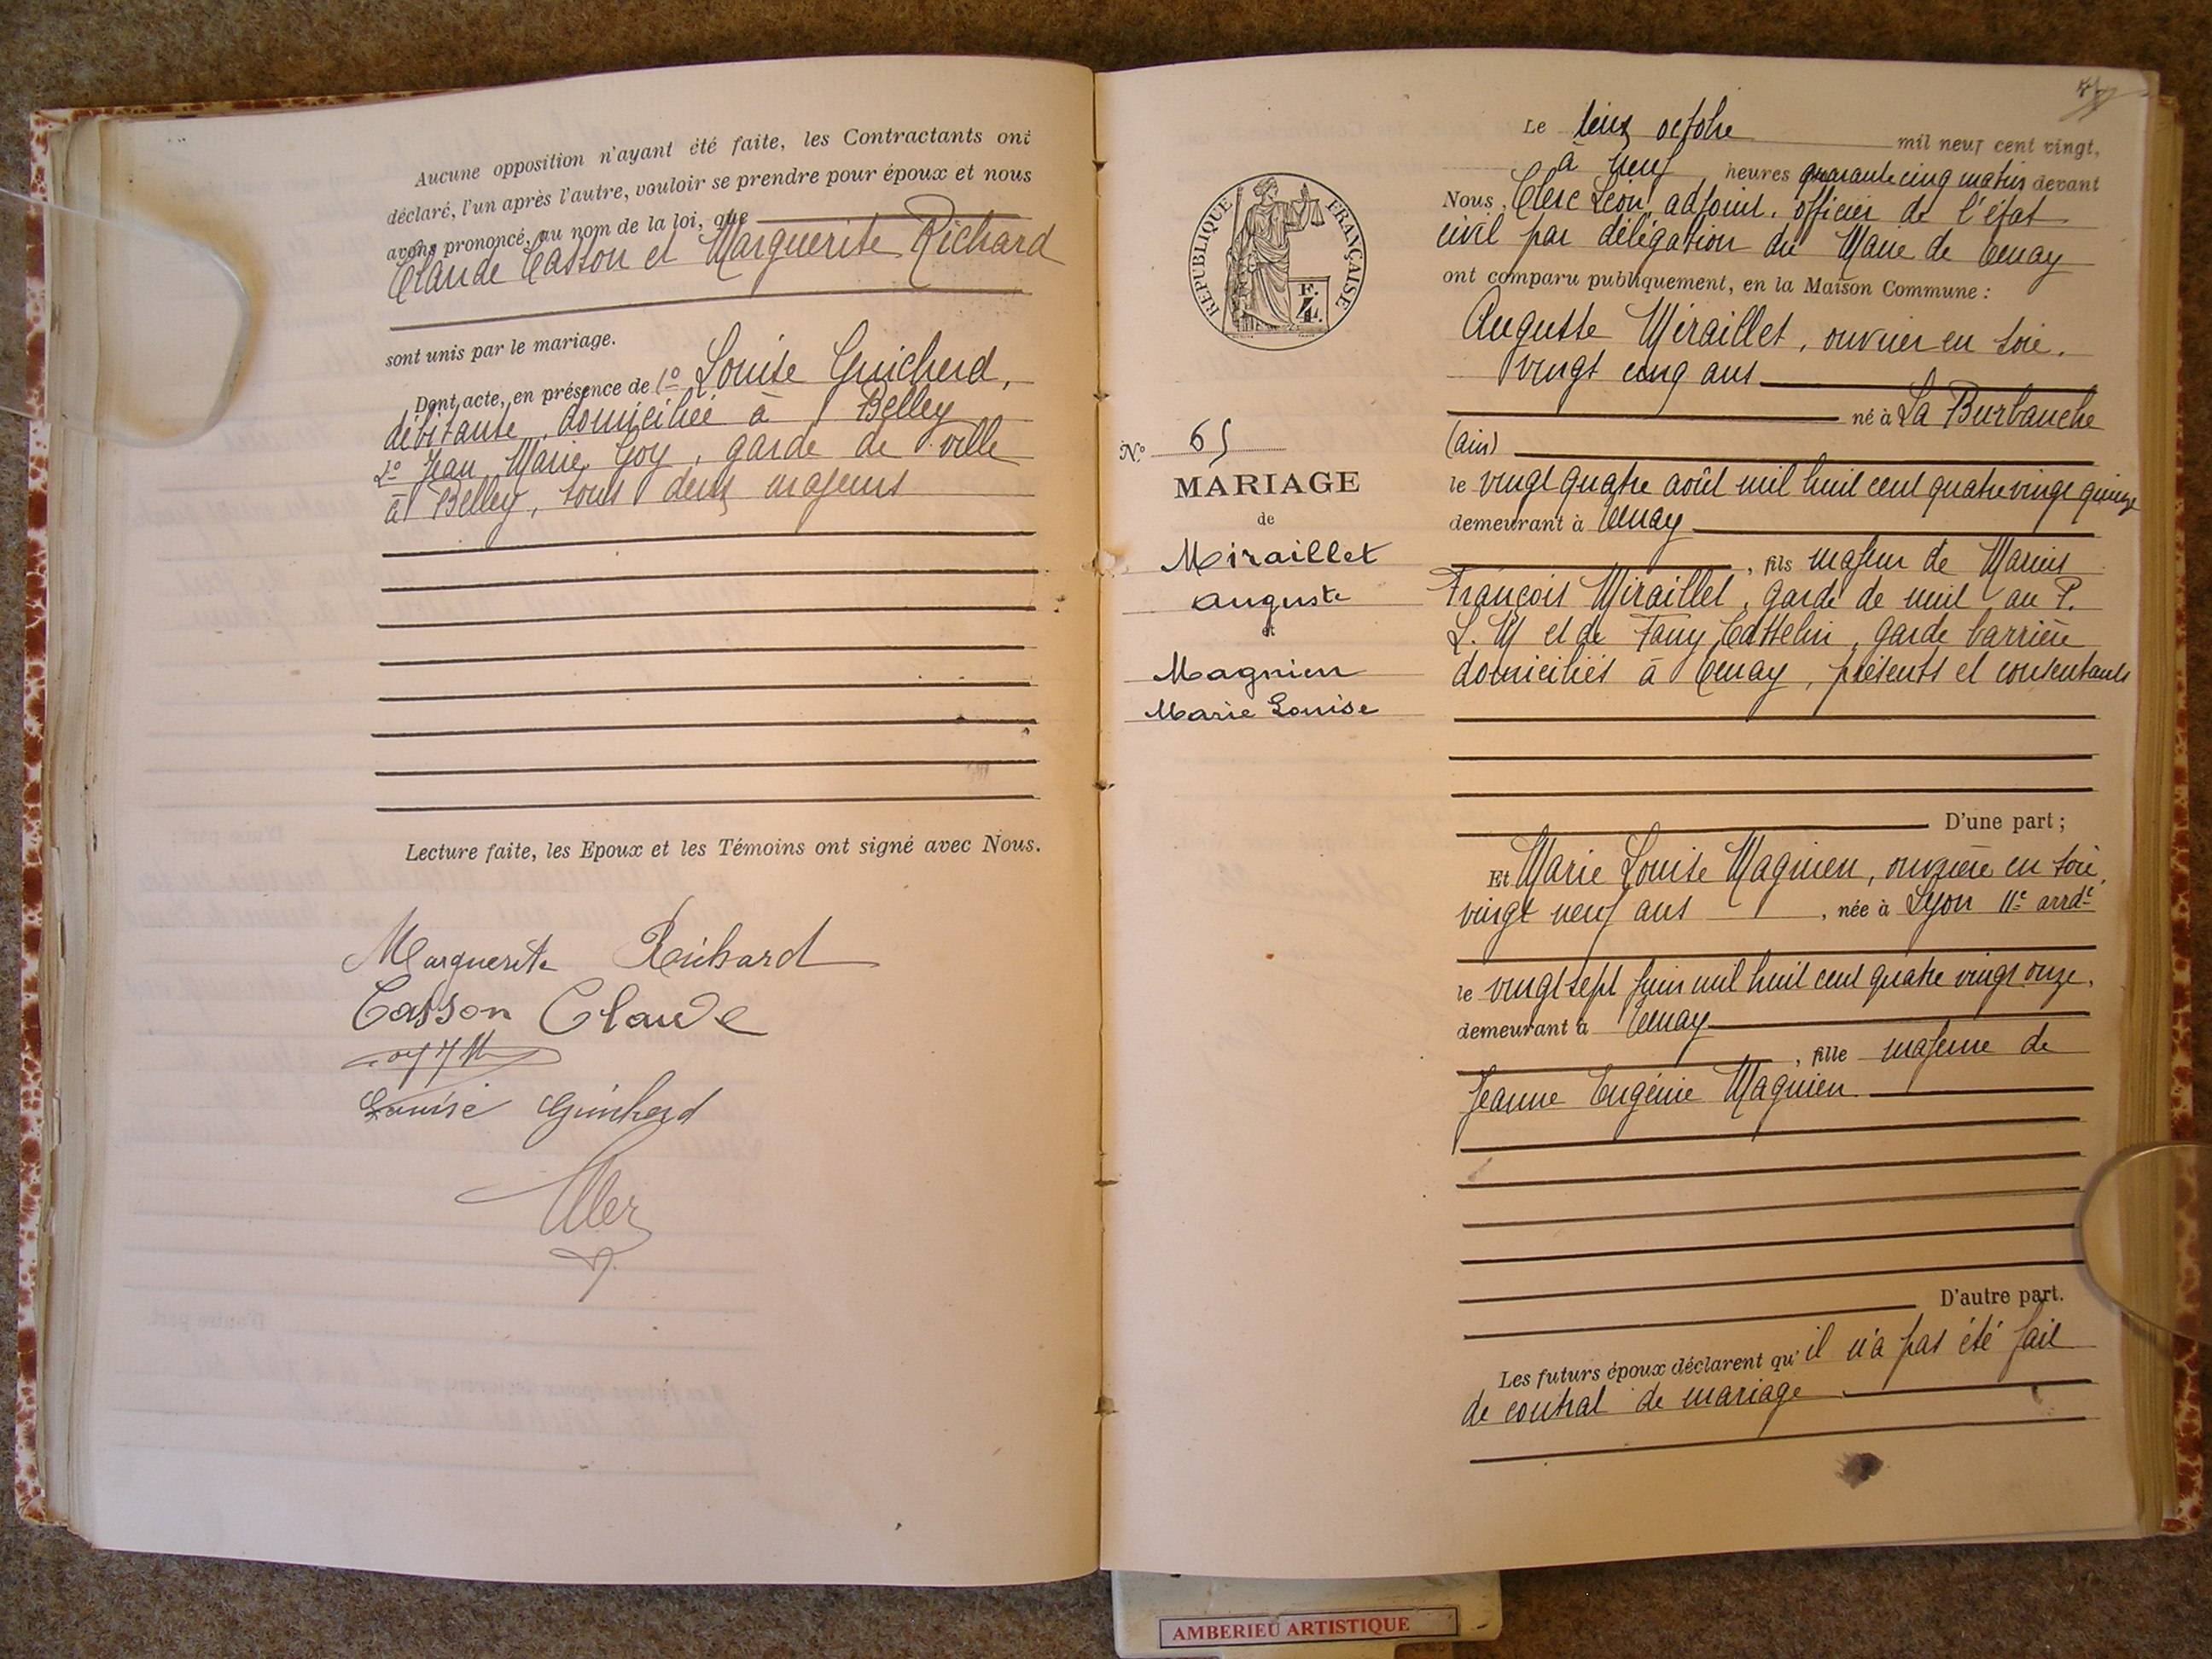 Aucune opposition n'ayant été faite, les Contractants ont
déclaré, l'un après l'autre, vouloir se prendre pour époux et nous
avons prononcé, au nom de la loi, que
Claude Casson et Marguerite Richard
sont unis par le mariage.
Dont acte, en présence de 1º Louise Guicherd,
débitante, domiciliée à Belley
2º Jean Marie Goy, garde de ville
à Belley, tous deux majeurs
Lecture faite, les Epoux et les Témoins ont signé avec Nous.
Marguerite Richard
Casson Claude
Louise Guicherd
RÉPUBLIQUE FRANÇAISE
N.º 65
MARIAGE
de
Miraillet
Auguste
et
Magnien
Marie Louise
Le deux octobre mil neuf cent vingt,
à neuf heures quarante cinq matin devant
Nous, Clerc Léon, adjoint, officier de l'état
civil par délégation du Maire de Tenay
ont comparu publiquement, en la Maison Commune :
Auguste Miraillet, ouvrier en soie,
vingt cinq ans
né à La Burbanche
(ain)
le vingt quatre août mil huit cent quatre vingt quinze
demeurant à Tenay
, fils majeur de Marius
François Miraillet, garde de nuit au P.
L. M et de Fany Casselin, garde barrière
domiciliés à Tenay, présents et consentants
D'une part ;
Et Marie Louise Magnien, ouvrière en soie,
vingt neuf ans , née à Lyon IIe arrdt
le vingt sept juin mil huit cent quatre vingt onze,
demeurant à Tenay
, fille majeure de
Jeanne Eugénie Magnien.
D'autre part.
Les futurs époux déclarent qu'il n'a pas été fait
de contrat de mariage.
AMBERIEU ARTISTIQUE